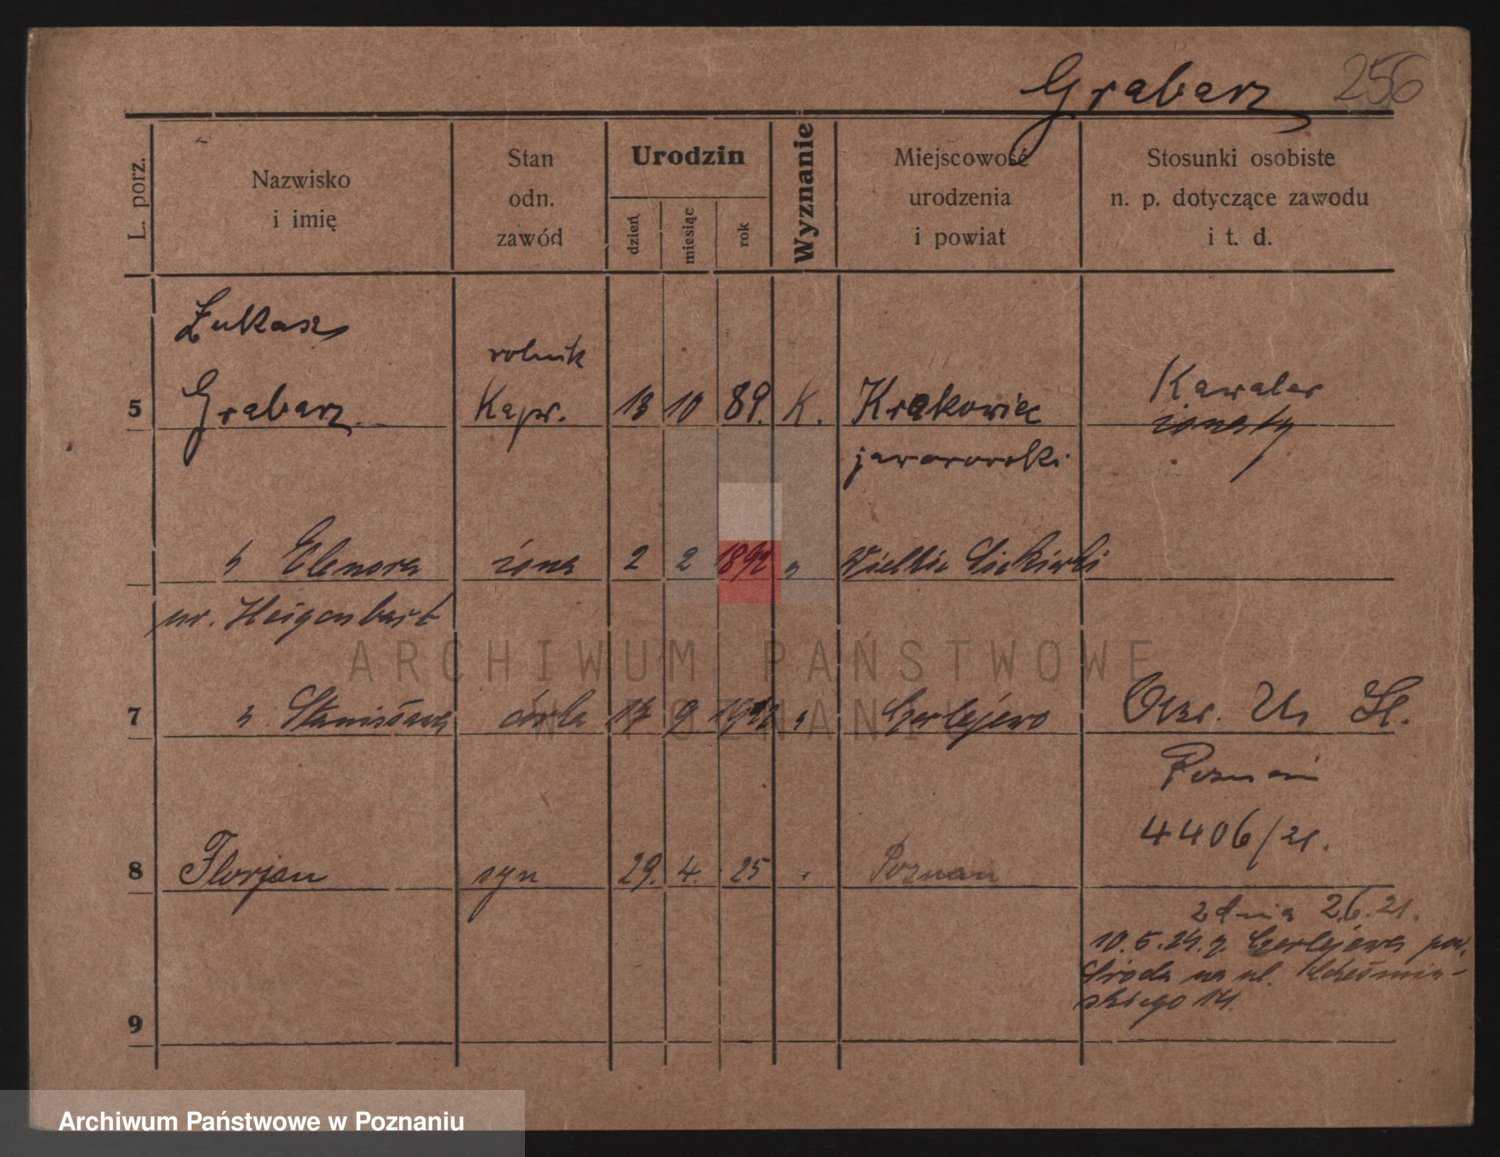 Grabarz 256
L. porz.
Nazwisko
i imię
Stan
odn.
zawód
Urodzin
dzień
miesiąc
rok
Wyznanie
Miejscowość
urodzenia
i powiat
Stosunki osobiste
n. p. dotyczące zawodu
i t. d.
Łukasz
rolnik
5 Grabarz Kapr. 13 10 89. K. Krakowiec Kawaler
jaworowski żonaty
" Elenora żona 2 2 1892 " Wielkie
ur.
7 " Stanisława córka 17 9 " Gerlejewo
Poznań
4406/21.
8 Florjan syn 29. 4. 25 " Poznań
z dnia 2.6.21.
10.5.24. z. pow.
Środa na ul.
skiego 14.
9
ARCHIWUM PAŃSTWOWE
W POZNANIU
Archiwum Państwowe w Poznaniu